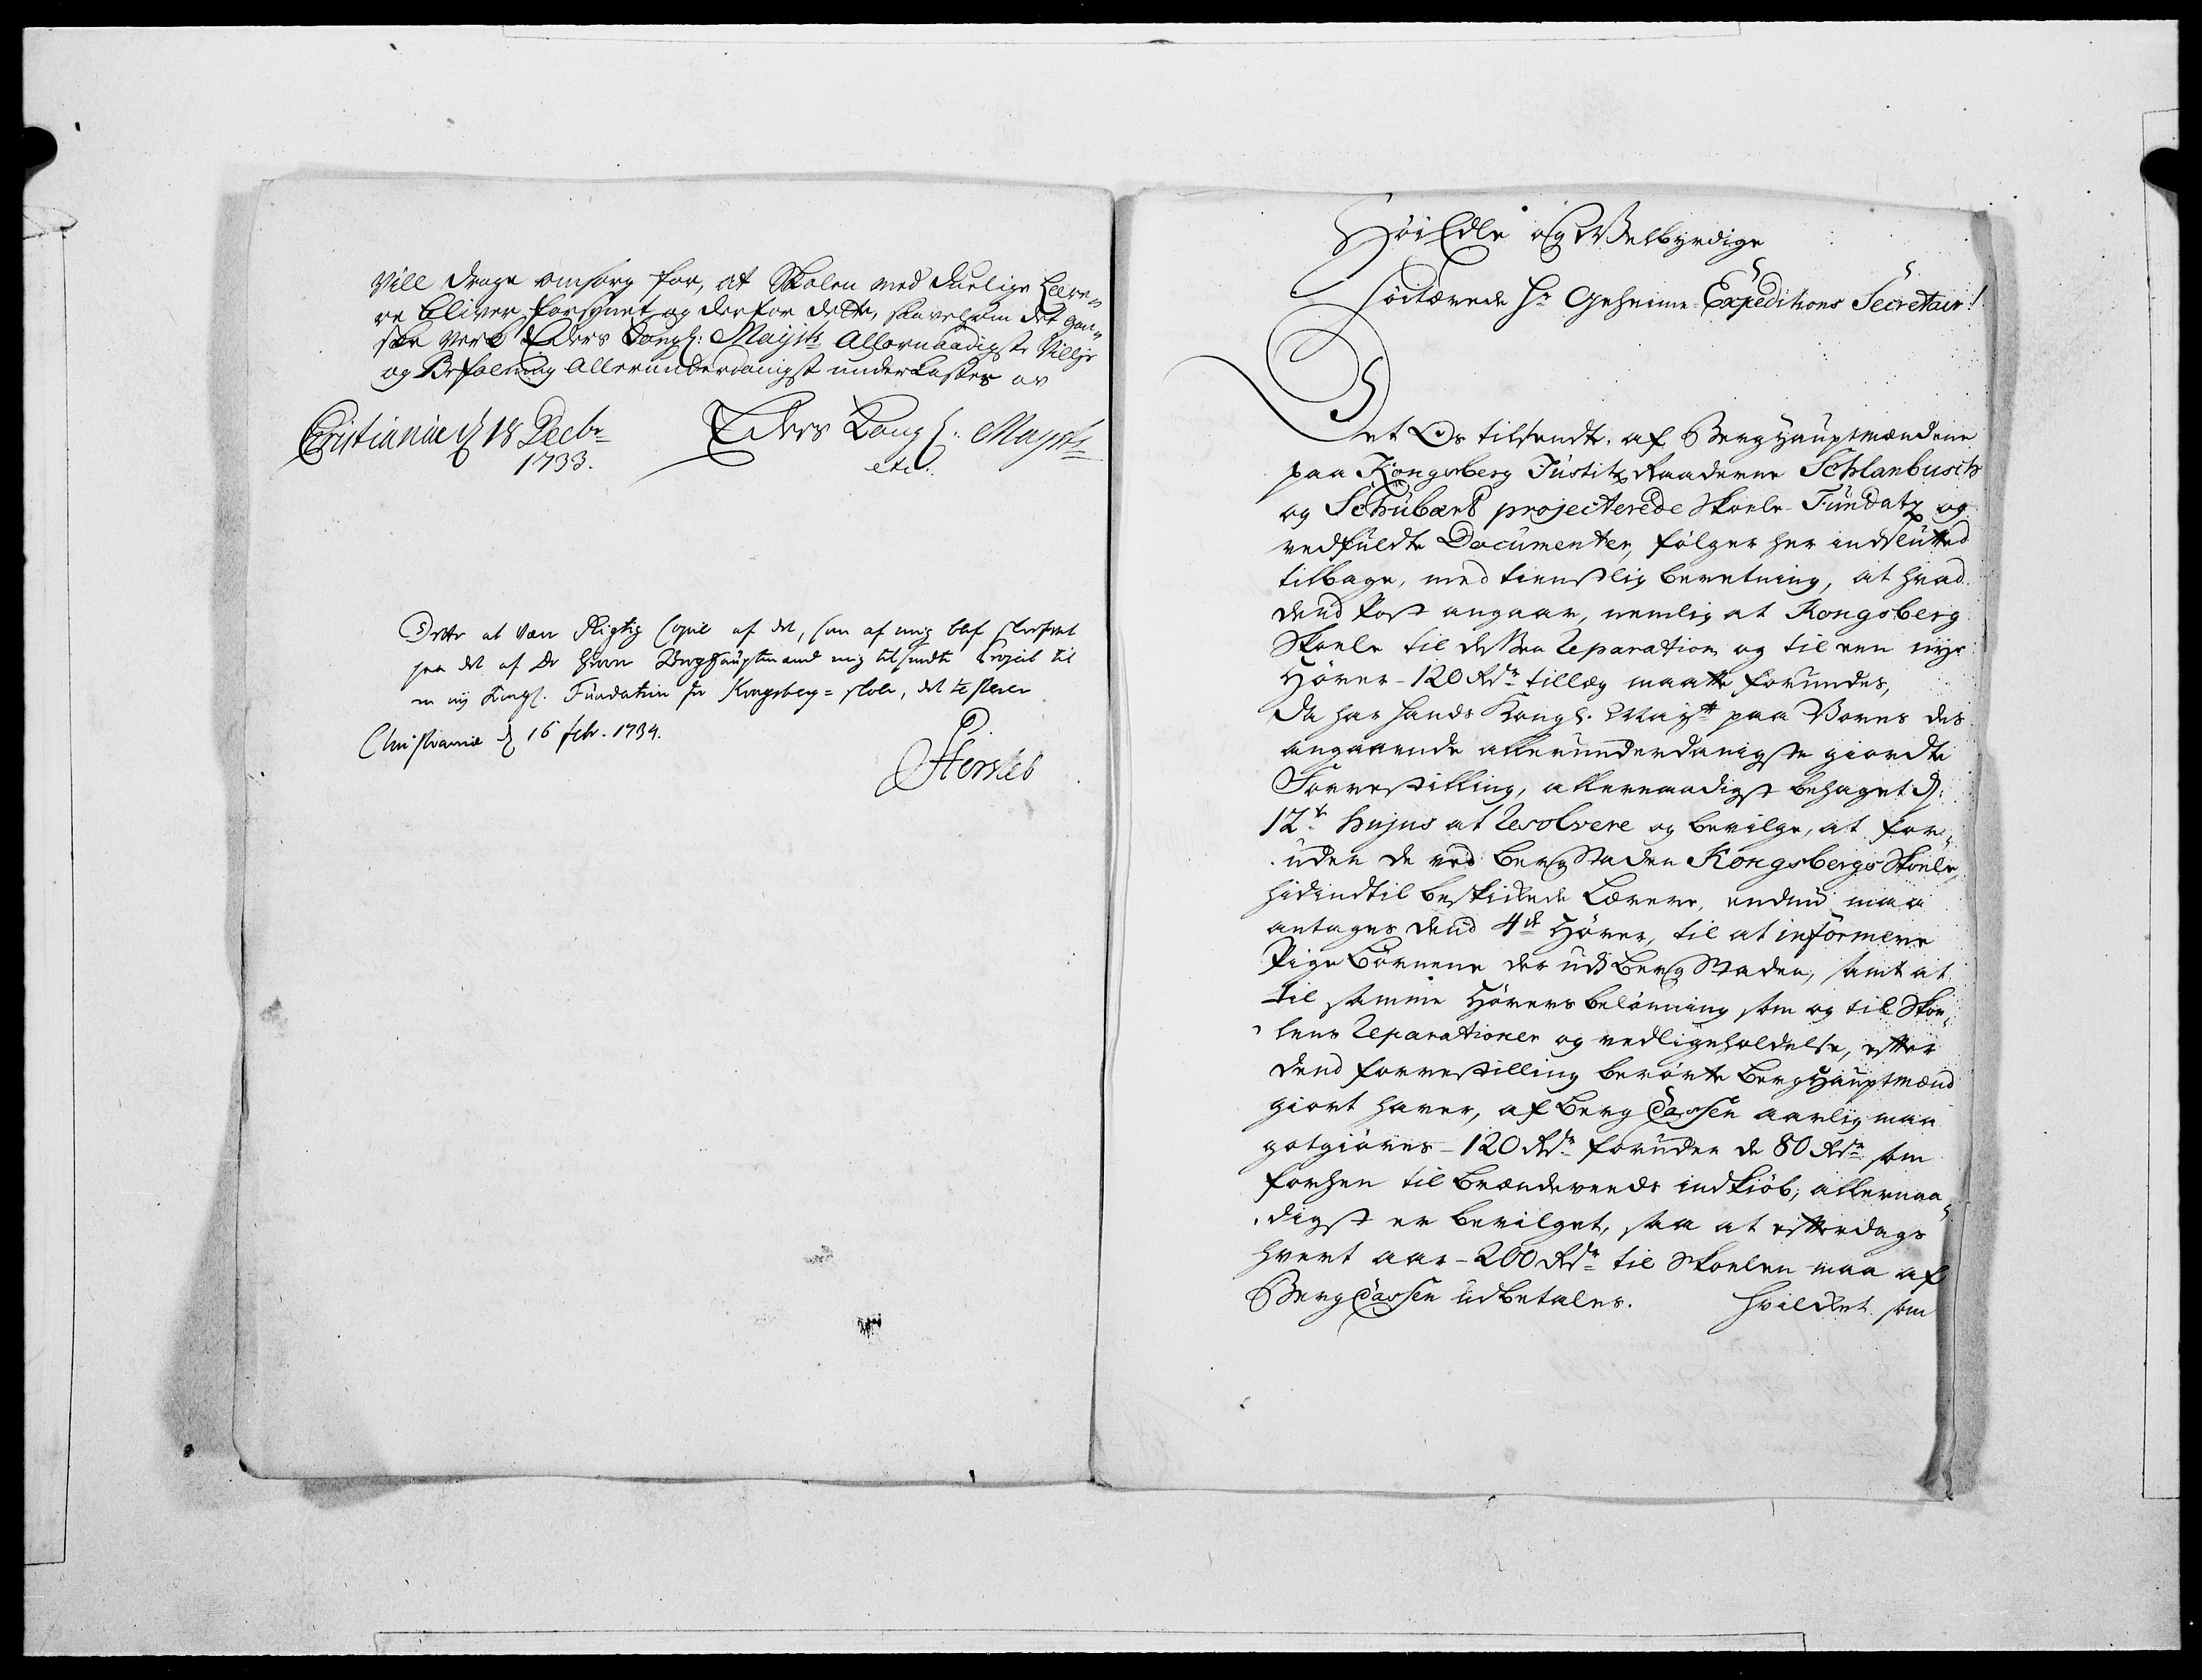 Vill drage omsorg for, at Skolen med duelige Lære¬
re bliver forsynet, og derfor dette, saavelsom det gan¬
ske Verk Eders Kongl: Mayts Allernaadigste Villje
og Befalning Allerunderdanigst underkastes av
Cristianiæ d 18 Decbr
1733.
Eders Kongl: Mayts
etc:
Dette at være Rigtig Copie af det, som af mig blef skrefvet
paa det af De Herrer Berghauptmænd mig tilsendte Project til
en ny Kongl. Fundation for Kongsberg=skole, det testerer
Christiania d 16 febr. 1734.
P Hersleb
HöiEdle og Velbyrdige
Höitærede Hr Geheime Expeditions Secretair!
Det Os tilsendte af BergHauptmændene
paa Kongsberg Justitz Raaderne Schlanbusch
og Schubært projecterede Skoele-Fundatz og
vedfuldte Documenter, fölger her indsluttet
tilbage, med tienstlig beretning, at hvad
dend Post angaar, nemlig at Kongsberg
Skoele til dessen Reparation og til een nye
Hörer - 120 Rdr tillæg maatte forundes,
da har Hands Kongl. Mayt paa Vores des
angaaende allerunderdanigste giordte
Forrestilling, allernaadigst behaget d:
12te hujus at Resolvere og bevilge, at for¬
uden de ved BergStaden Kongsbergs Skoele,
hidindtil beskikede Lærere, endnu maa
antages dend 4de Hörer, til at informere
Pige Börnene der udi BergStaden, samt at
til samme Hörers belönning som og til Skoe¬
lens Reparationer og vedligeholdelse, efter
dend forrestilling berörte BergHauptmænd
giort haver, af Berg Cassen aarlig maa
gotgiöres - 120 Rdr foruden de 80 Rdr som
forhen til Brændeveeds indkiöb, allernaa¬
digst er bevilget, saa at efterdags
hvert aar - 200 Rdr til Skoelen maa af
Berg Cassen udbetales. Hvilket som